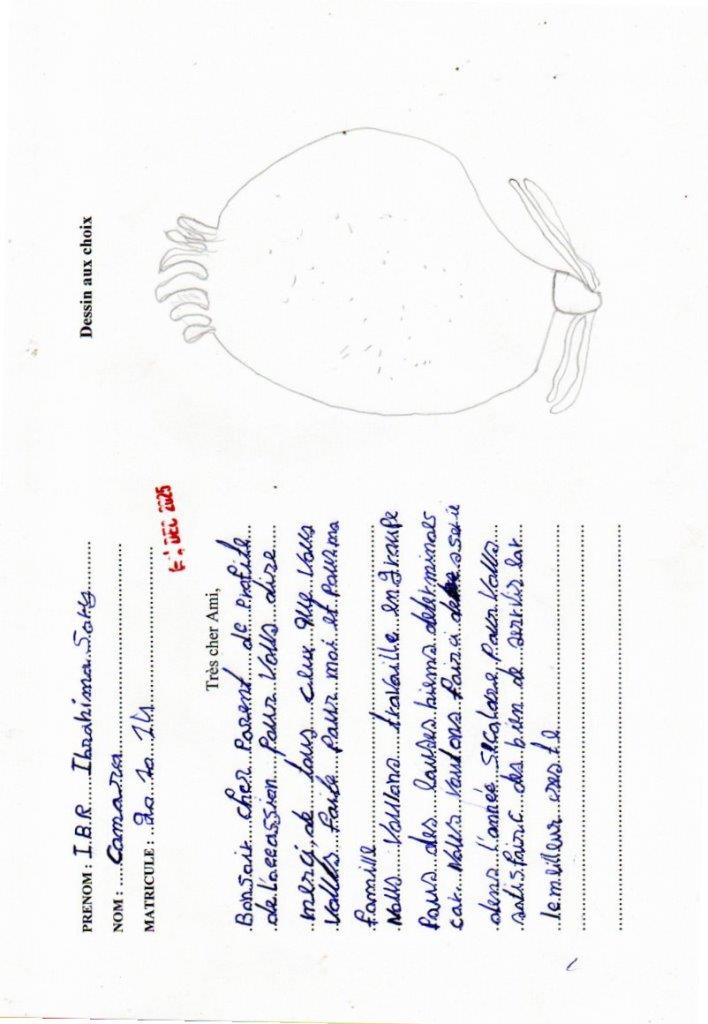 PRENOM : I.B.R Ibrahima Sory
NOM : Camara
MATRICULE :
DEC 2025
Dessin aux choix
Très cher Ami,
Bonsoir cher Parent de Profite
de l'occassion Pour Vous dire
merci, de tous ceux que Vous
Vous faite Pour moi et Pour ma
famille
Nous Voulons travaille en groupe
Pous des bien determinals
car Nous Voulons
dans l'année Scolaire Pour Vous
satisfaire des bien de servir
le meilleur